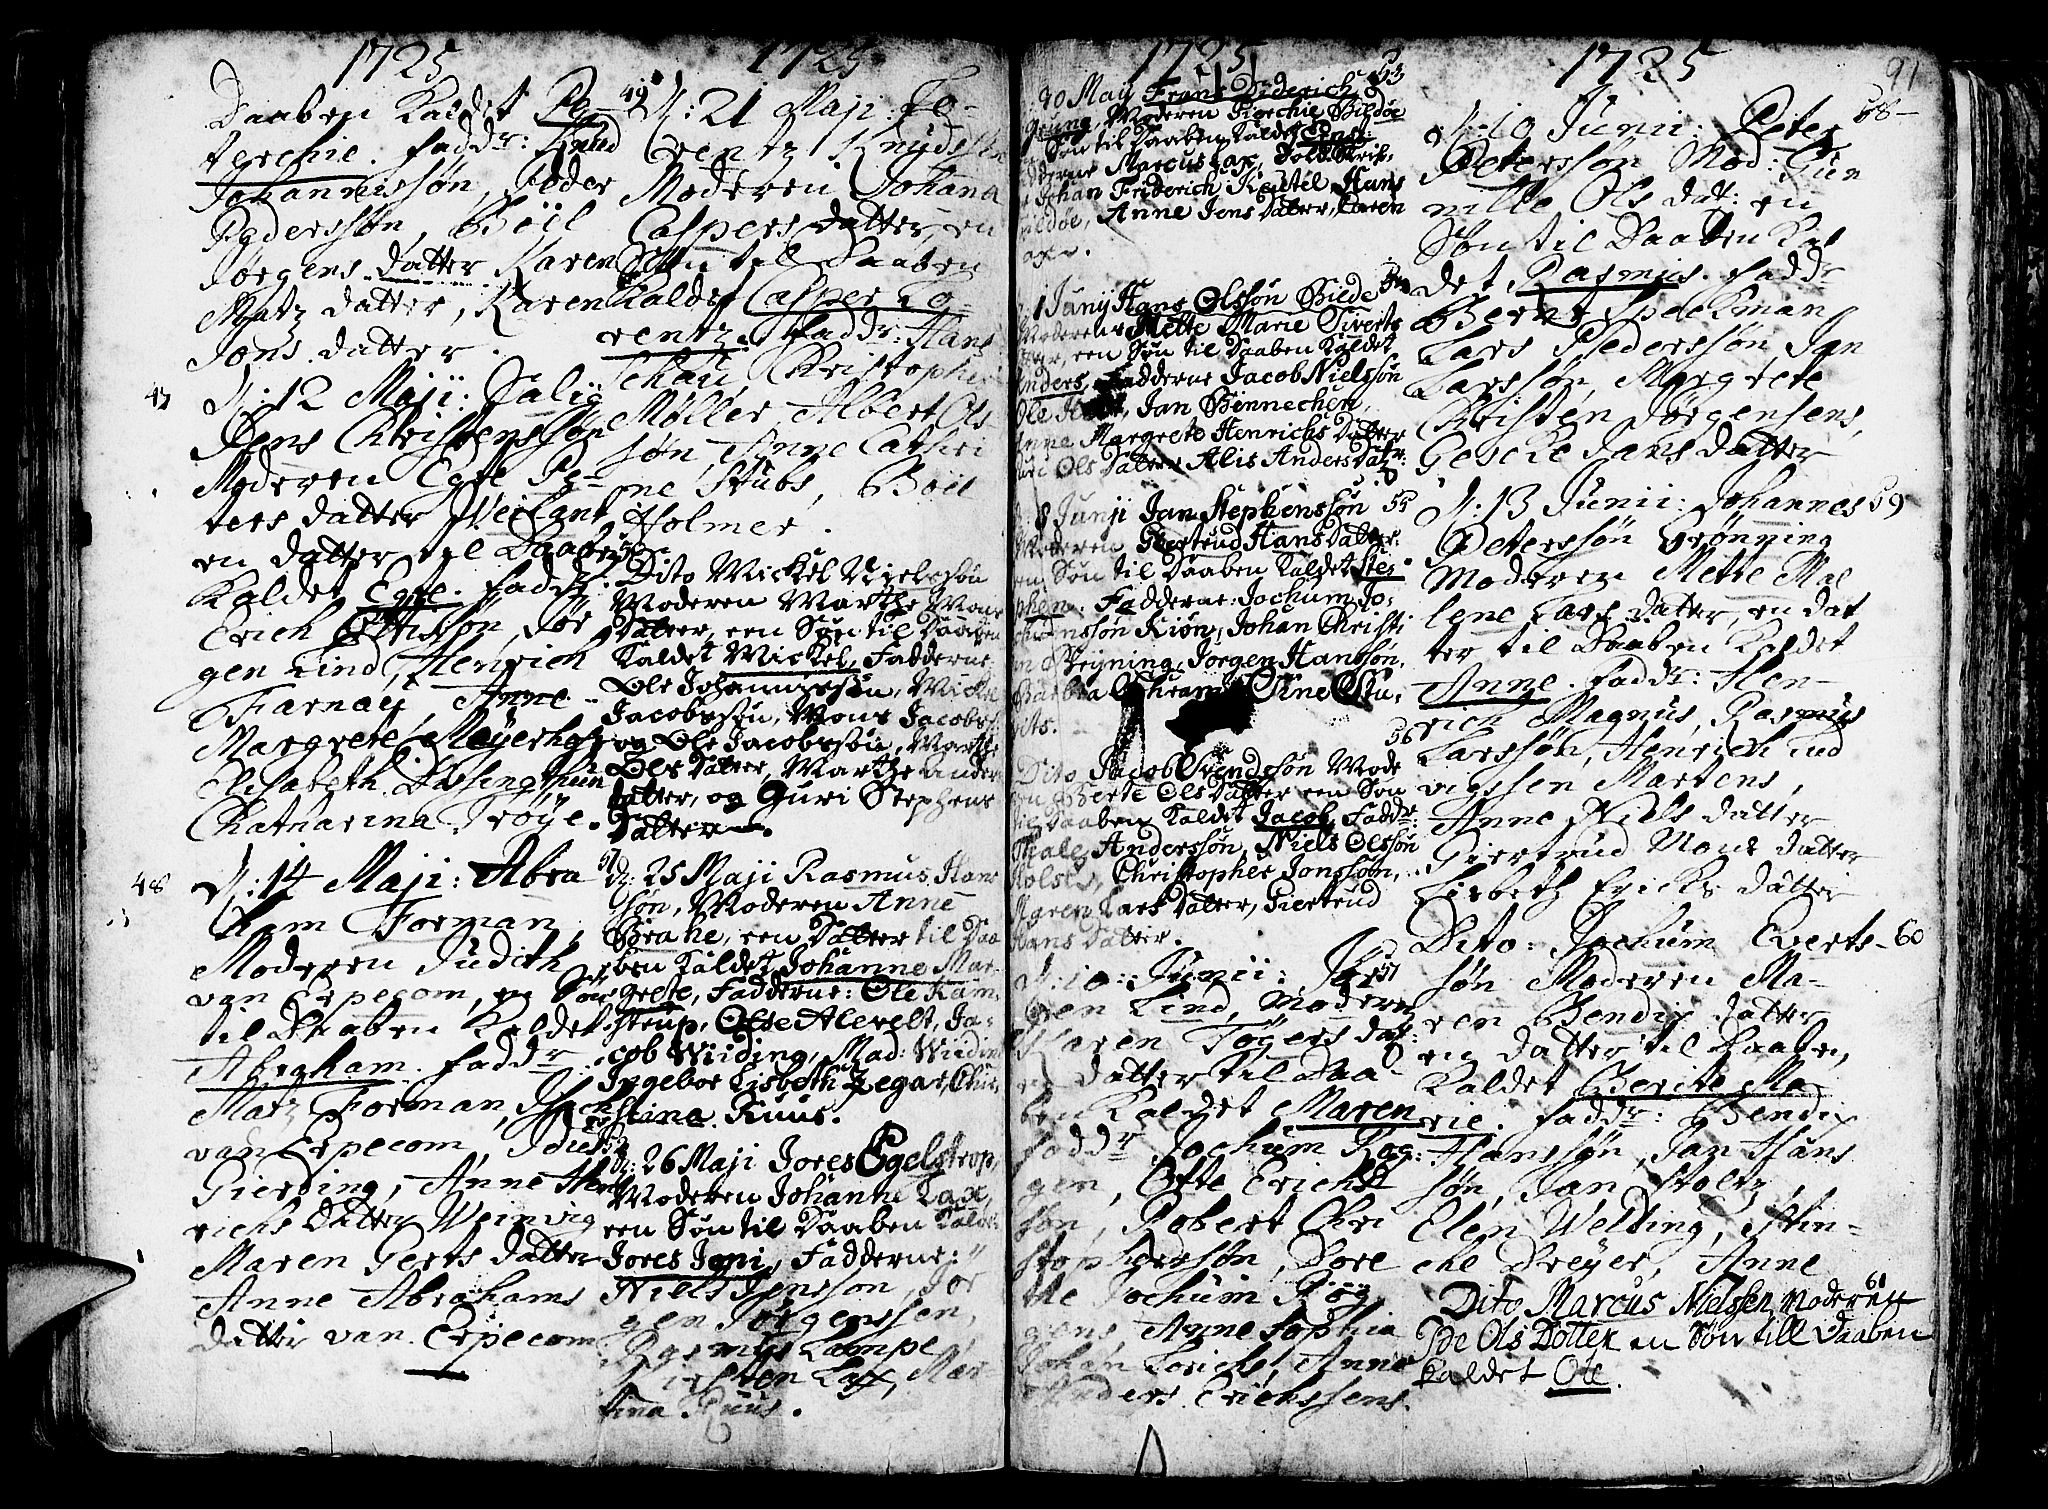 1725
Daaben Kaldet Pe-
terchie. Faddr: Knud
Johannissøn, Peder
Pederssøn, Böil
Jørgens datter Karen
Matz datter, Karen
Jons datter.
47
D: 12 Maji: Salig
Jens Christenssøn
Moderen Egte Pe-
ters datter
en datter til Daaben
Kaldet Egte. Faddr:
Erich Ottissøn, Jør
gen Lind, Henrich
Farnaü, Anne
Margrete Meyerhof
Elisabeth
Catharina Trøye.
48
D: 14 Maji: Abra
ham Forman,
Moderen Judith
van Erpecom, en Søn
til Daaben Kaldet
Abraham. Faddr
Matz Forman, Jſach
van Erpecom,
Gierding, Anne Hen
richs Datter Weinvig
Maren Gerts datter
Anne Abrahams
datter van Erpecom
1725
49
D: 21 Maji: Lo-
rentz Knudssøn
Moderen Johana
Caspers datter, en
Søn til Daaben
Kaldet Casper Lo-
rentz. Faddr: Hans
Schau, Christopher
Møller Albert Ols
søn, Anne Cathri
ne Stubs, Böil
Holmer.
50
Dito Mickel Nielssøn
Moderen Marthe Mons
Datter, een Søn til Daaben
Kaldet Mickel, Fadderne
Ole Johannissøn, Mickel
Jacobssøn, Mons Jacobs
og Ole Jacobssøn, Marthe
Ols Datter, Marthe Anders
datter, og Guri Stephens
Datter.
51
D: 25 Maji Rasmus Hans
søn, Moderen Anne
Brahe, een Datter til Daa
ben Kaldet Johanne Mar-
grete, Fadderne: Ole Kam
strup, Olse Alevelt, Ja-
cob Wiiding, Mad: Wiiding
Ingebor Lisbeth Zegar, Chri
stina Kuus.
52
D: 26 Maji Jores Egelstrop,
Moderen Johanne Lax,
een Søn til Daaben Kaldet
Jores Joni, Fadderne:
Niels Jenssøn, Jør
gen Jørgenssen,
Rasmus Lampe
Kirsten Lax, Mar-
tina Kuus.
1725
53
30 May Frans Diderich
Grung, Moderen Dorthie Bildøe
Søn til Daaben Kaldet
Fadderne Marcus Lax, Told Skrib.
Johan Friderich Keutel, Hans
Bildøe, Anne Jens Datter, Karen
54
1 Junij Hans Olssøn Giede
Moderen Mette Marie Siverts
datter, een Søn til Daaben Kaldet
Anders, Fadderne Jacob Nielssøn
Ole, Jan Binnechen,
Anne Margrete Henrichs Datter
Ols Datter Alis Anders Datr:
55
8 Junji Jan Stephenssøn
Moderen Giertrud Hans Datter
en Søn til Daaben Kaldet Ste-
phen. Fadderne: Jochum Jo-
chumssøn Kiøn, Johan Christi
an Breijning, Jorgen Hanssøn,
Barbra Schram, Stine Stu-
bits.
56
Dito Jacob Svendssøn Mode
ren Berte Ols Datter een Søn
til Daaben Kaldet Jacob, Faddr:
Anderssøn, Niels Olssøn
Holst, Christopher Jonssøn,
Maren Lars Datter, Giertrud
Hans Datter.
57
D: 10: Junii:
Lind, Moderen
Karen Tøgers dat:
en datter til Daa-
ben Kaldet Maren
Faddr Jochum Røg-
gen, Otte Erichs
søn, Robert Chri
stopherssøn, Dore
the Jochum Røg
gens, Anne Sophia
Johan Lorich, Anne
Anders Erichssens.
1725
91
58
D: 10 Junii: Peter
Peterssøn Mod: Gun
nille Ols dat: en
Søn til Daaben Kal
det, Rasmus. Faddr
Bernt Speckman
Lars Pederssøn, Jan
Larssøn, Margrete
Christen Jørgensens,
Gesche Jans datter
59
D: 13 Junii: Johannes
Peterssøn Grønning
Moderen Mette Mal
lene Lars datter, en dat
ter til Daaben Kaldet
Anne. Faddr: Hen-
rich Magnus, Rasmus
Larssøn, Henrich Lud
vigsen Martens,
Anne Niels datter
Giertrud Mons datter
Lisbeth Erichs datter
60
Dito: Jochum Everts-
søn Moderen Ma-
ren Bendix datter
en datter til Daaben,
Kaldet Berite Ma
rie. Faddr: Bendix
Hanssøn, Jan Hans
søn, Jan Stoltz,
Elen Welding, Stin-
che Dreyer, Anne
61
Dito Marcus Nielssen Moderen
Ide Ols Dotter en Søn till Daaben
Kaldet Ole.